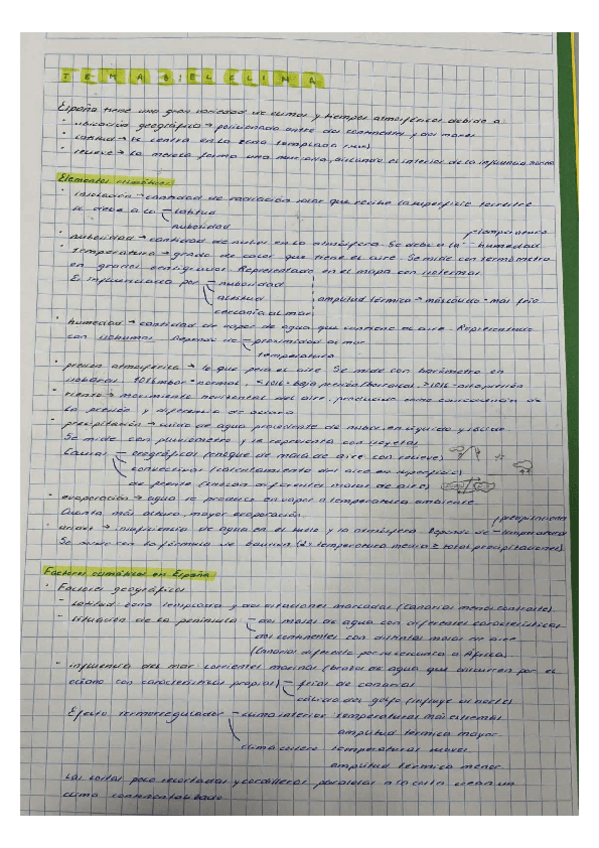 TEMA 3: EL CLIMA
España tiene una gran variedad de climas y tiempos atmosféricos debido a:
· ubicación geográfica → posicionada entre dos continentes y dos mares
· latitud → se centra en la zona templada
· relieve → la meseta forma una muralla, aislando el interior de la influencia
Elementos climáticos
· insolación → cantidad de radiación solar que recibe la superficie terrestre
se debe a la - latitud
nubosidad
· nubosidad → cantidad de nubes en la atmósfera. Se debe a la - humedad
temperatura
· temperatura → grado de calor que tiene el aire. Se mide con termómetro
en grados centígrados. Representado en el mapa con isotermas.
Es influenciada por - nubosidad
altitud
cercanía al mar
amplitud térmica → más cálido - más frío
· humedad → cantidad de vapor de agua que contiene el aire. Representado
con Depende de - proximidad al mar
temperatura
· presión atmosférica → lo que pesa el aire. Se mide con barómetro en
isobaras. 1016 mbar = normal, <1016 = baja presión/borrascas, >1016 = alta presión
· viento → movimiento horizontal del aire, producido como consecuencia de
la presión y diferencia de
· precipitación → caída de agua procedente de nubes, en líquido y sólido
Se mide con pluviómetro y se representa con isoyetas
Causas - orográficas (choque de masa de aire con relieve)
convectivas (calentamiento del aire en superficie)
de frente (chocan diferentes masas de aire)
· evaporación → agua se produce en vapor a temperatura ambiente
Cuanta más altura, mayor evaporación.
· aridez → insuficiencia de agua en el suelo y la atmósfera. Depende de - temperatura
precipitaciones
Se mide con la fórmula de Gaussen (2x temperatura media ≥ total precipitaciones)
Factores climáticos en España
· Factores geográficos
- latitud: zona templada y dos estaciones marcadas (Canarias menos contraste)
- situación de la península - dos masas de agua con diferentes características
dos continentes con distintas masas de aire
(Canarias diferente por su cercanía a África)
· influencia del mar: corrientes marinas (brazos de agua que discurren por el
océano con características propias) - frías de canarias
cálida del golfo (influye al norte)
Efecto termorregulador - clima interior temperaturas más extremas
amplitud térmica mayor
clima costero temperaturas suaves
amplitud térmica menor
Las costas poco recortadas y cordilleras paralelas a la costa crean un
clima continentalizado